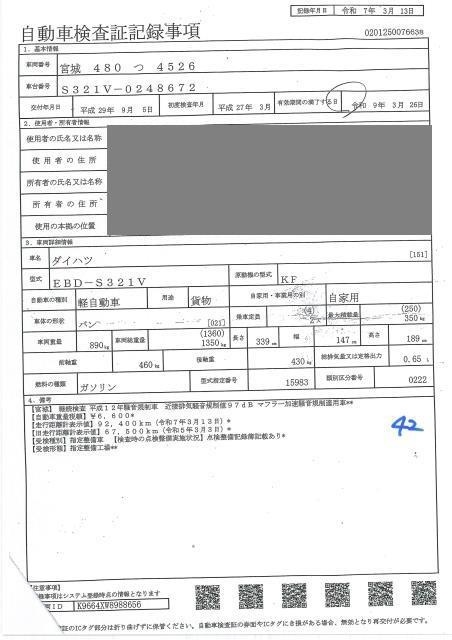 記録年月日 令和 7年 3月 13日
自動車検査証記録事項
020125007663B
1．基本情報
車両番号 宮城 480 つ 4526
車台番号 S321V－0248672
交付年月日 平成 29年 9月 5日 初度検査年月 平成 27年 3月 有効期間の満了する日 令和 9年 3月 26日
2．使用者・所有者情報
使用者の氏名又は名称
使用者の住所
所有者の氏名又は名称
所有者の住所
使用の本拠の位置
3．車両詳細情報
車名 ダイハツ [151]
型式 EBD－S321V 原動機の型式 KF
自動車の種別 軽自動車 用途 貨物 自家用・事業用の別 自家用
車体の形状 バン [021] 乗車定員 (4) 2人 最大積載量 (250) 350kg
車両重量 890kg 車両総重量 (1360) 1350kg 長さ 339cm 幅 147cm 高さ 189cm
前軸重 460kg 後軸重 430kg 総排気量又は定格出力 0.65 L
燃料の種類 ガソリン 型式指定番号 15983 類別区分番号 0222
4．備考
【宮城】 継続検査 平成12年騒音規制車 近接排気騒音規制値97dB マフラー加速騒音規制適用車**
【自動車重量税額】¥6,600*
【走行距離計表示値】92,400km（令和7年3月13日）*
【旧走行距離計表示値】67,500km（令和5年3月3日）*
【受検種別】指定整備車 【検査時の点検整備実施状況】点検整備記録簿記載あり*
【受検形態】指定整備工場**
42
【注意事項】
記録事項はシステム登録時点の情報となります
ID K9664XW8988656
証のICタグ部分は折り曲げずに保管ください。自動車検査証の券面やICタグにき損がある場合、無効となり再交付が必要です。